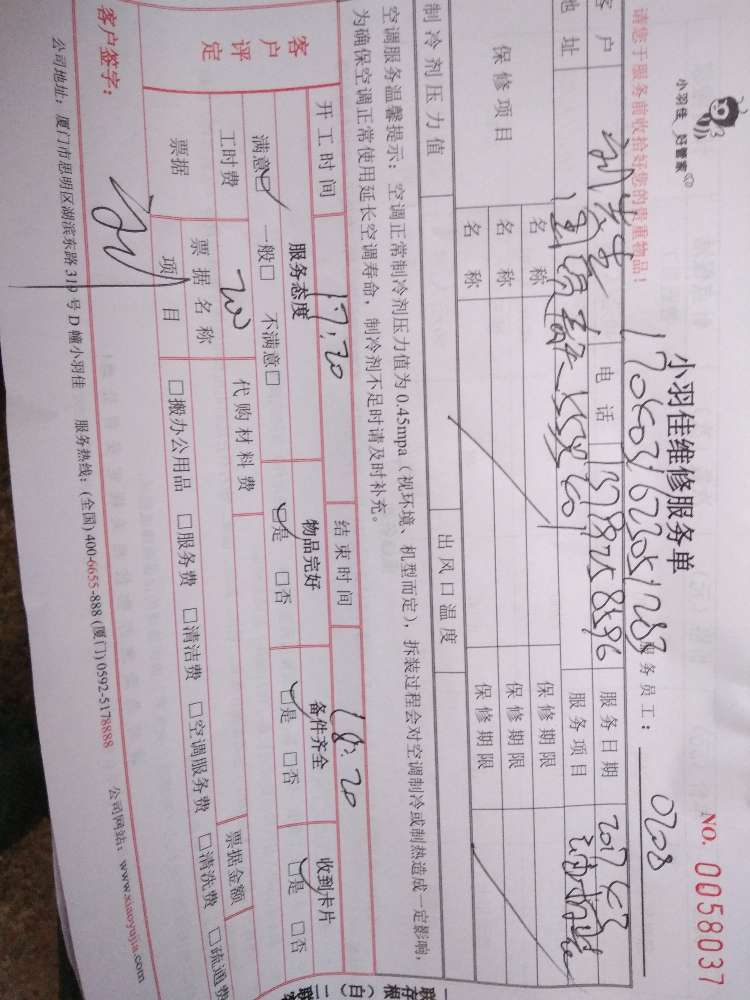 小羽佳 好管家
小羽佳维修服务单
NO. 0058037
请您于服务前收拾好您的贵重物品!
务员工: 0208
客户 电话 服务日期 2017
地址 服务项目
保修项目 名称 保修期限
名称 保修期限
名称 保修期限
制冷剂压力值 出风口温度
空调服务温馨提示: 空调正常制冷剂压力值为 0.45mpa(视环境、机型而定), 拆装过程会对空调制冷或制热造成一定影响,
为确保空调正常使用延长空调寿命, 制冷剂不足时请及时补充。
开工时间 17:20 结束时间 18:20
客户评定 服务态度 物品完好 备件齐全 收到卡片
满意□ 一般□ 不满意□ □是 □否 □是 □否 □是 □否
工时费 200 代购材料费
票据 票据名称 票据金额
项目 □搬办公用品 □服务费 □清洁费 □空调服务费 □清洗费 □疏通费
客户签字:
公司地址: 厦门市思明区湖滨东路 319 号 D 幢小羽佳 服务热线: (全国) 400-6655-888 (厦门) 0592-5178888 公司网站: www.xiaoyujia.com